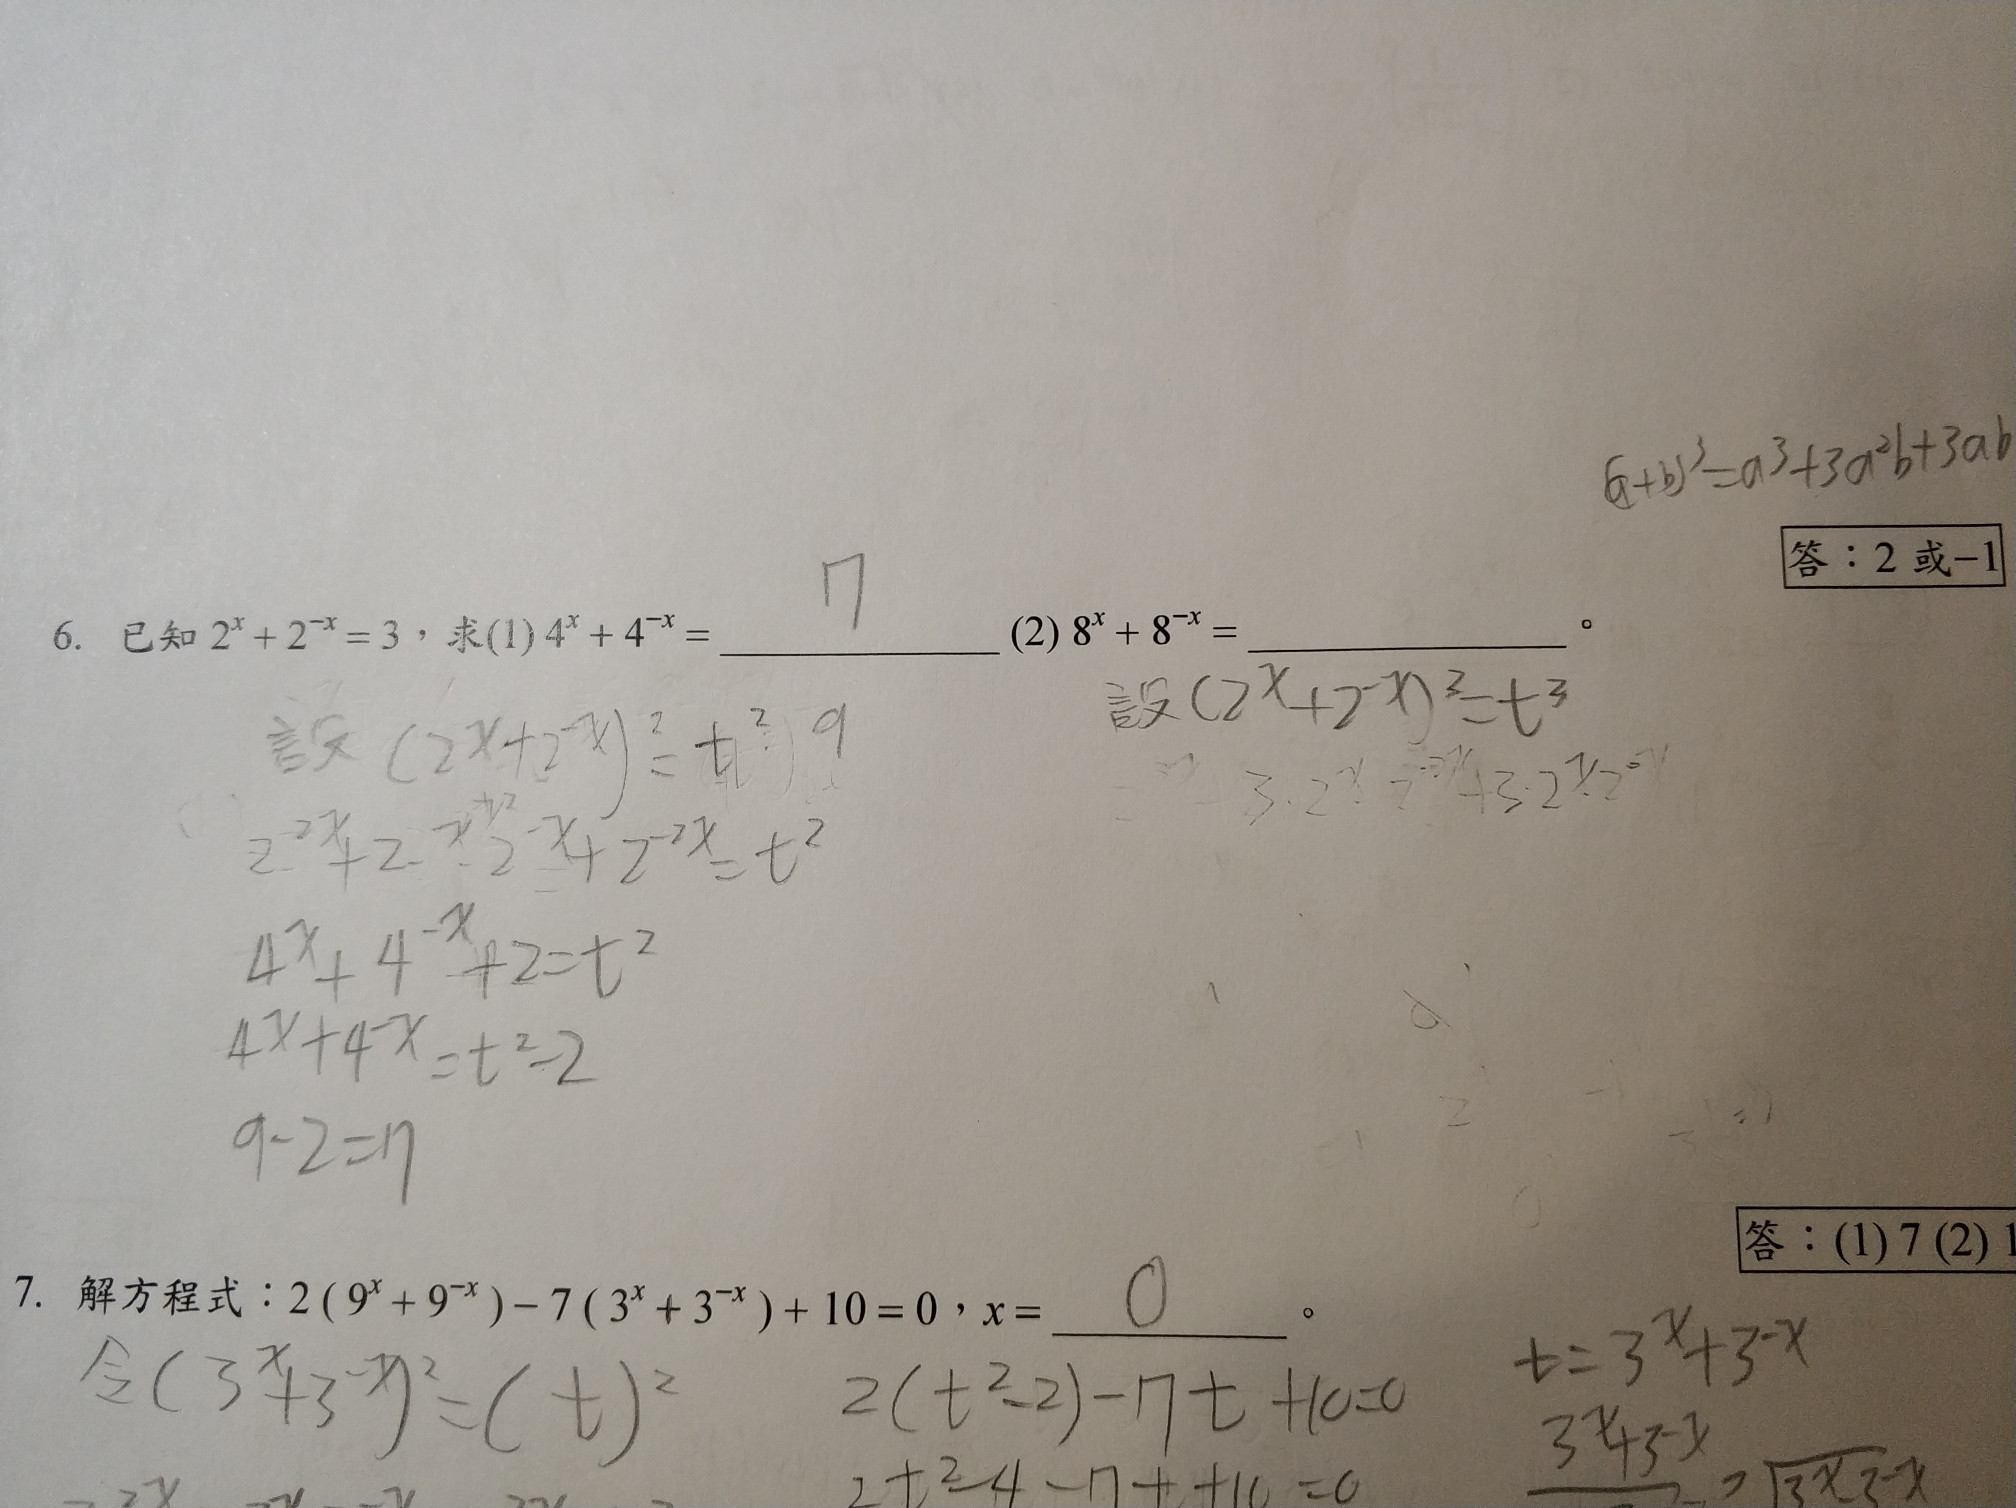 (a+b)³=a³+3a²b+3ab
答：2 或−1
7
6. 已知 2ˣ + 2⁻ˣ = 3，求(1) 4ˣ + 4⁻ˣ = ____________ (2) 8ˣ + 8⁻ˣ = ____________。
設 (2ˣ+2⁻ˣ)²=t² 9
設 (2ˣ+2⁻ˣ)³=t³
3·2ˣ·2⁻²ˣ+3·2ˣ·2
+2⁻²ˣ=t²
4ˣ+4⁻ˣ+2=t²
4ˣ+4⁻ˣ=t²-2
9-2=7
答：(1) 7 (2) 1
7. 解方程式：2 ( 9ˣ + 9⁻ˣ ) − 7 ( 3ˣ + 3⁻ˣ ) + 10 = 0，x = 0。
令(3ˣ+3⁻ˣ)²=(t)²
2(t²-2)-7t+10=0
t=3ˣ+3⁻ˣ
3ˣ+3⁻ˣ
2t²-4-7t+10=0